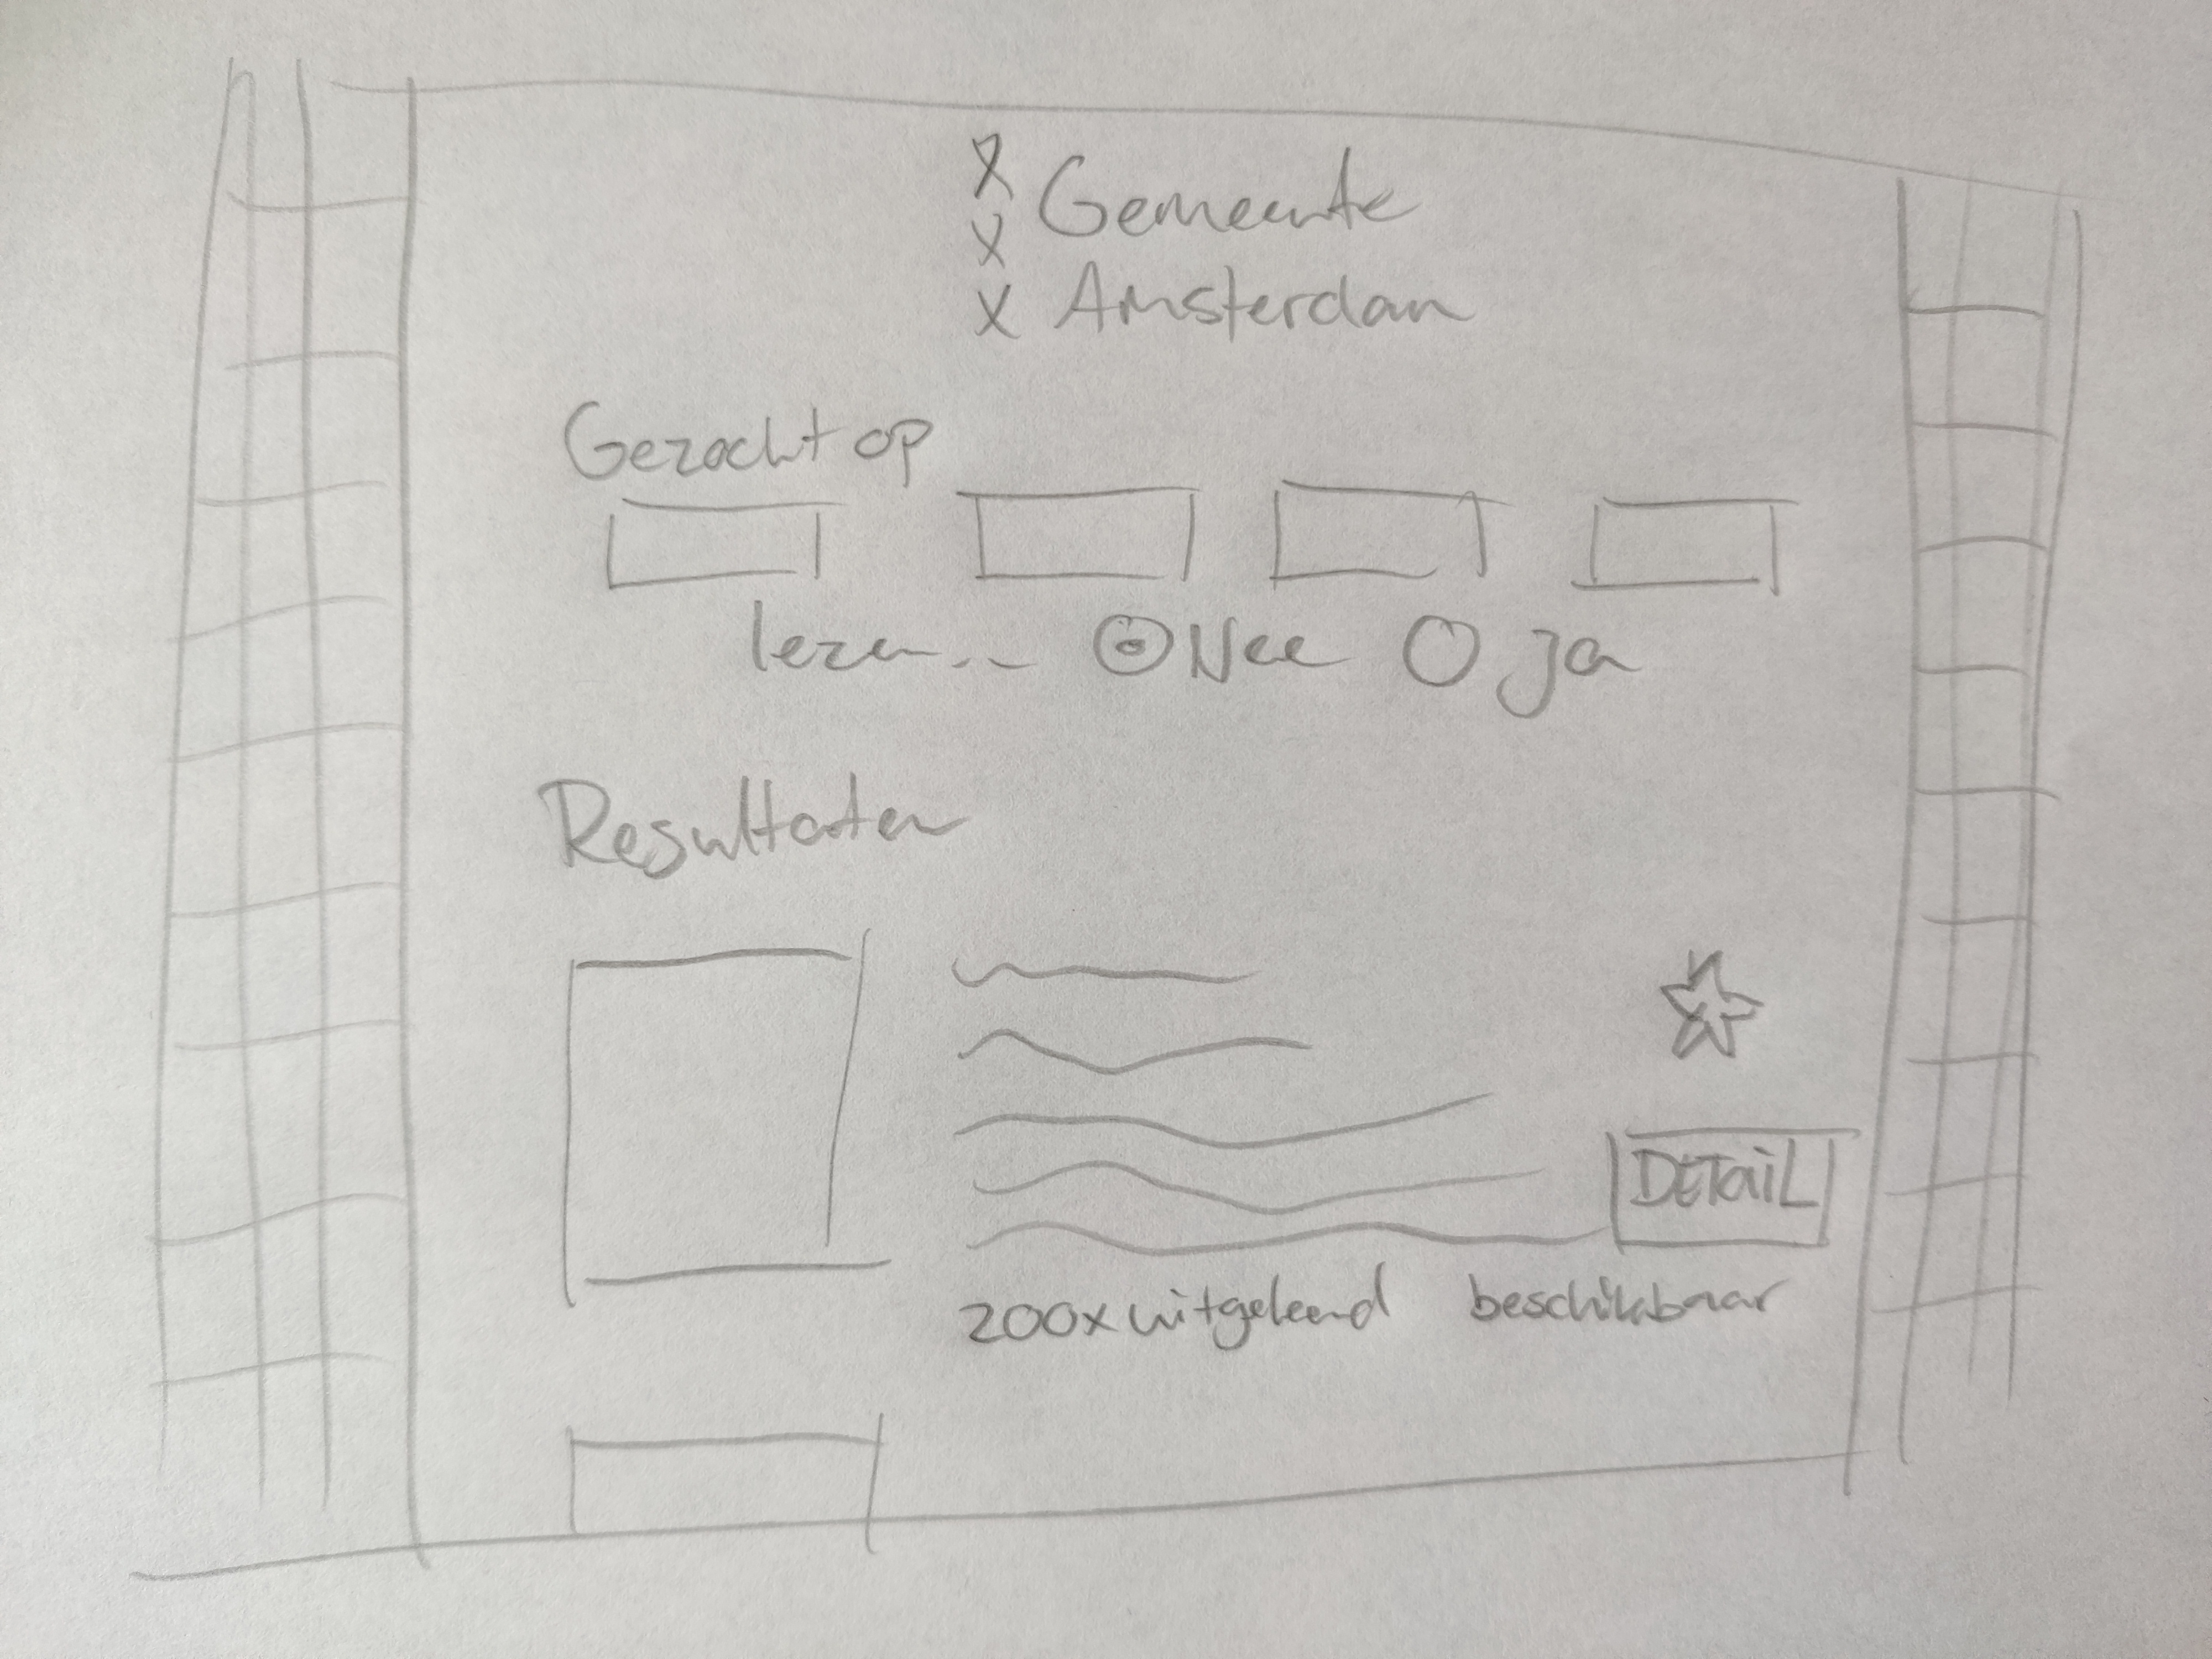 X Gemeente
X
X Amsterdam
Gezocht op
lezen... Nee Ja
Resultaten
DETaiL
200x uitgeleend beschikbaar